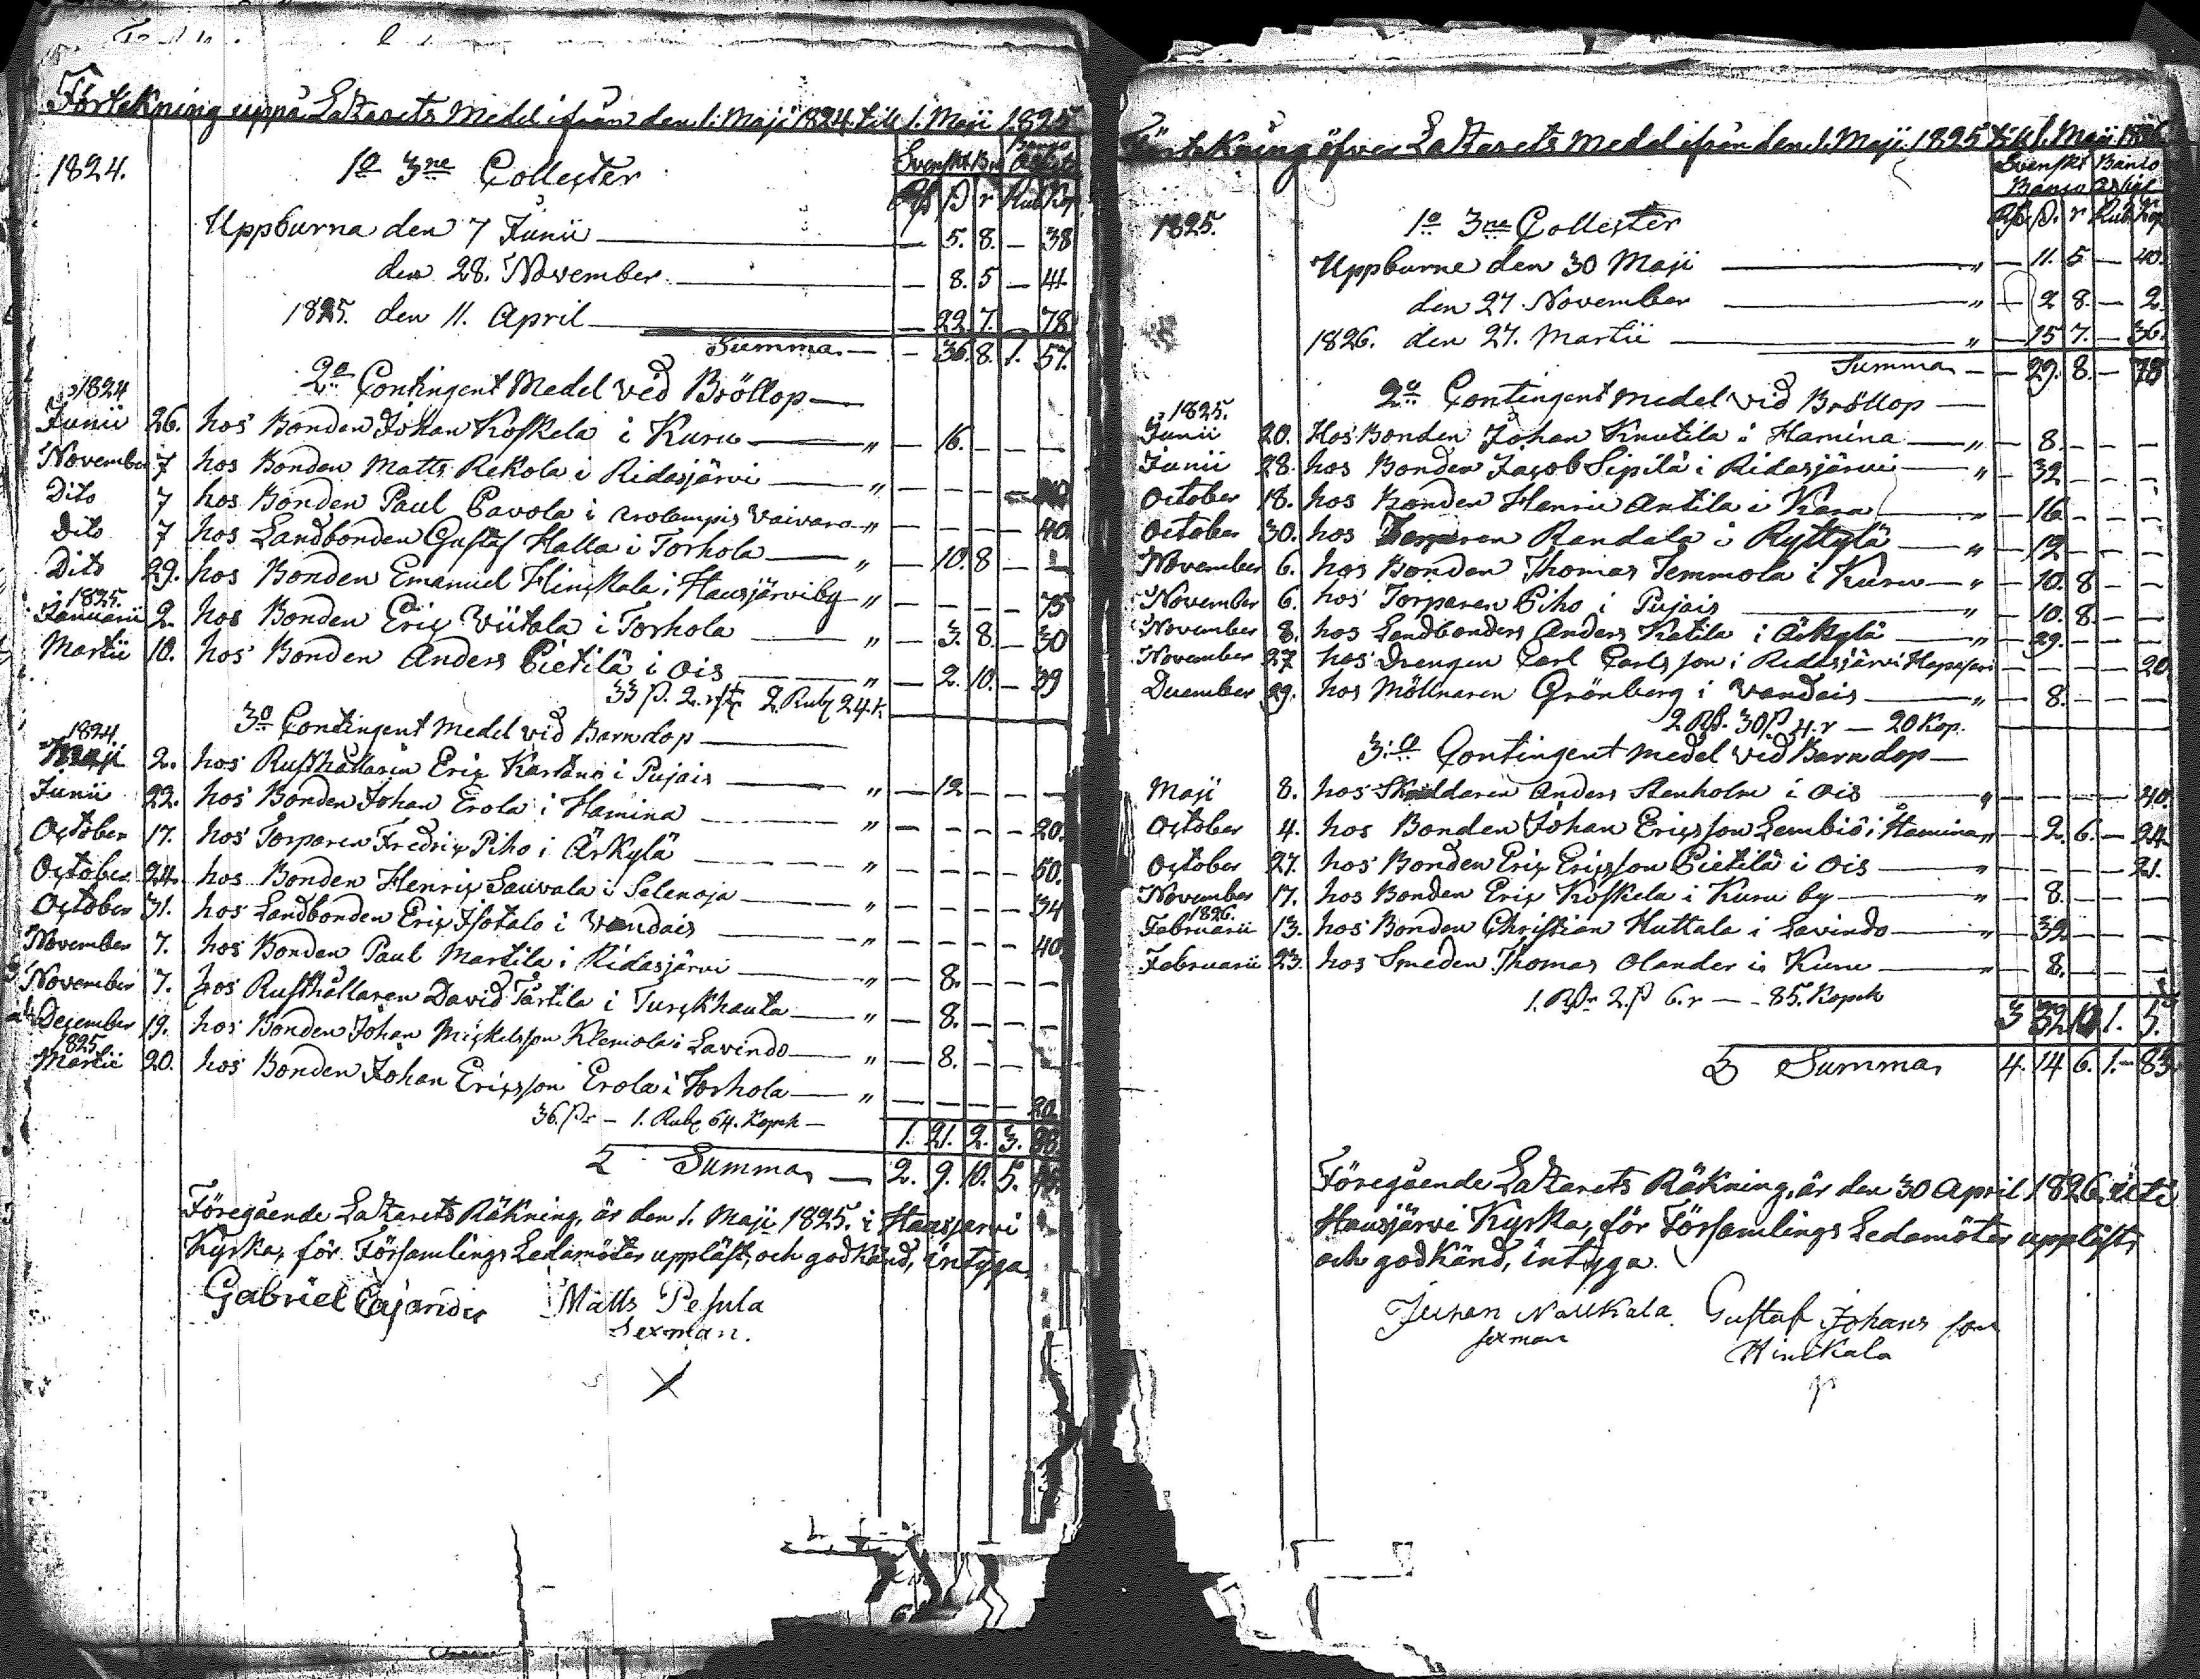 Förtekning uppå Lazarets Medel ifrån den 1. Maji 1824 till 1. Maji 1825
1824. 1o 3ne Collecter Svenskt Bco Banco Assign
Rd ß r Rub Kop
Uppburna den 7 Junii — 5. 8. — 38
den 28. November — 8. 5 — 41
1825. den 11. April — 22. 7. — 78
Summa — 36. 8. 1. 57.
2o Contingent Medel vid Bröllop —
1824
Junii 26. hos Bonden Johan Koskela i Kuru — " — 16. — — —
November 7 hos Bonden Matts Rekola i Ridasjärvi — " — — — —
Dito 7 hos Bonden Paul Pavola i Arolampis Vaivara " — — — — 40
Dito 7 hos Landbonden Gustaf Halla i Torhola — " — 10. 8 — —
Dito 29. hos Bonden Emanuel Hinckala i Hausjärviby — " — — — — 75
1825.
Januarii 2. hos Bonden Eric Viitala i Torhola — " — 3. 8. — 30
Martii 10. hos Bonden Anders Pietilä i Ois — " — 2. 10. — 39
33 ß. 2. r 2. Rub 24. K
3o Contingent Medel vid Barndop —
1824
Maji 2. hos Rusthållaren Eric Kartano i Pujais — " — 12 — — —
Junii 22. hos Bonden Johan Erola i Hamina — " — — — — 20.
October 17. hos Torparen Fredric Piho i Ärkylä — " — — — — 50.
October 24. hos Bonden Henric Sauvala i Selenoja — " — — — — 34
October 31. hos Landbonden Eric Isotalo i Vandais — " — — — — 40
November 7. hos Bonden Paul Martila i Ridasjärvi — " — 8. — — —
November 7. hos Rusthållaren David Tårtila i Turckhauta — " — 8. — — —
December 19. hos Bonden Johan Mickelsson Klemola i Lavindo — " — 8. — — —
1825
Martii 20. hos Bonden Johan Ericsson Erola i Torhola — " — — — — 20
36. ß — 1. Rub 64. Kopek —
1. 21. 2. 3. 88
Summa — 2. 9. 10. 5.
Föregående Lazarets Räkning, är den 1. Maji 1825. i Hausjärvi
Kyrka, för Församlings Ledamöter uppläst, och godkänd, intyga
Gabriel Cajander Matts Pesula
Sexman.
Förtekning öfver Lazarets Medel ifrån den 1. Maji 1825 till 1. Maji 1826
Svenskt Banco Banco Assign
1825. 1o 3ne Collecter Rd ß. r Rub Kop
Uppburne den 30 Maji — " — 11. 5 — 40.
den 27 November — " — 2 8. — 2.
1826. den 27. Martii — " — 15 7. — 36.
Summa — — 29. 8. — 78
2o Contingent Medel vid Bröllop —
1825.
Junii 20. Hos Bonden Johan Knutila i Hamina — " — 8. — — —
Junii 28. hos Bonden Jacob Sipilä i Ridasjärvi — " — 32 — — —
October 18. hos Bonden Henric Antila i Kara — " — 16 — — —
October 30. hos Torparen Randala i Ryttylä — " — 12 — — —
November 6. hos Bonden Thomas Temmola i Kuru — " — 10. 8 — —
November 6. hos Torparen Piho i Pujais — " — 10. 8. — —
November 8. hos Landbonden Anders Katila i Ärkylä — " — 29. — — —
November 27 hos Drengen Carl Carlsson i Ridasjärvi Hapasari — — — — 20
December 29. hos Möllnaren Grönberg i Vandais — " — 8. — — —
2 Rd. 30 ß 4. r — 20 Kop.
3:o Contingent Medel vid Barndop —
Maji 8. hos Skräddaren Anders Stenholm i Ois — " — — — — 40.
October 4. hos Bonden Johan Ericsson Lembiö i Hamina " — 2. 6. — 24.
October 27. hos Bonden Eric Ericsson Pietilä i Ois — " — — — — 21.
November 17. hos Bonden Eric Koskela i Kuru by — " — 8. — — —
1826.
Februarii 13. hos Bonden Christian Huttala i Lavindo — " — 32 — — —
Februarii 23. hos Smeden Thomas Olander i Kuru — " — 8. — — —
1. Rdr 2. ß 6. r — — 85. Kopek
3 32 10 1. 5.
Summa 4. 14 6. 1. — 83
Föregående Lazarets Räkning, är den 30 April 1826. uti
Hausjärvi Kyrka, för Församlings Ledamöter uppläst,
och godkänd, intyga.
Juhan Naukala Gustaf Johans son
sexman Hinckala